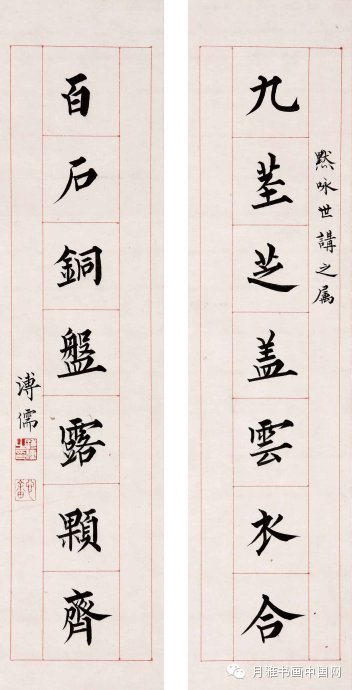 九茎芝盖雲衣合
黙咏世講之属
百石銅盤露顆齊
溥儒
月雅书画中国网